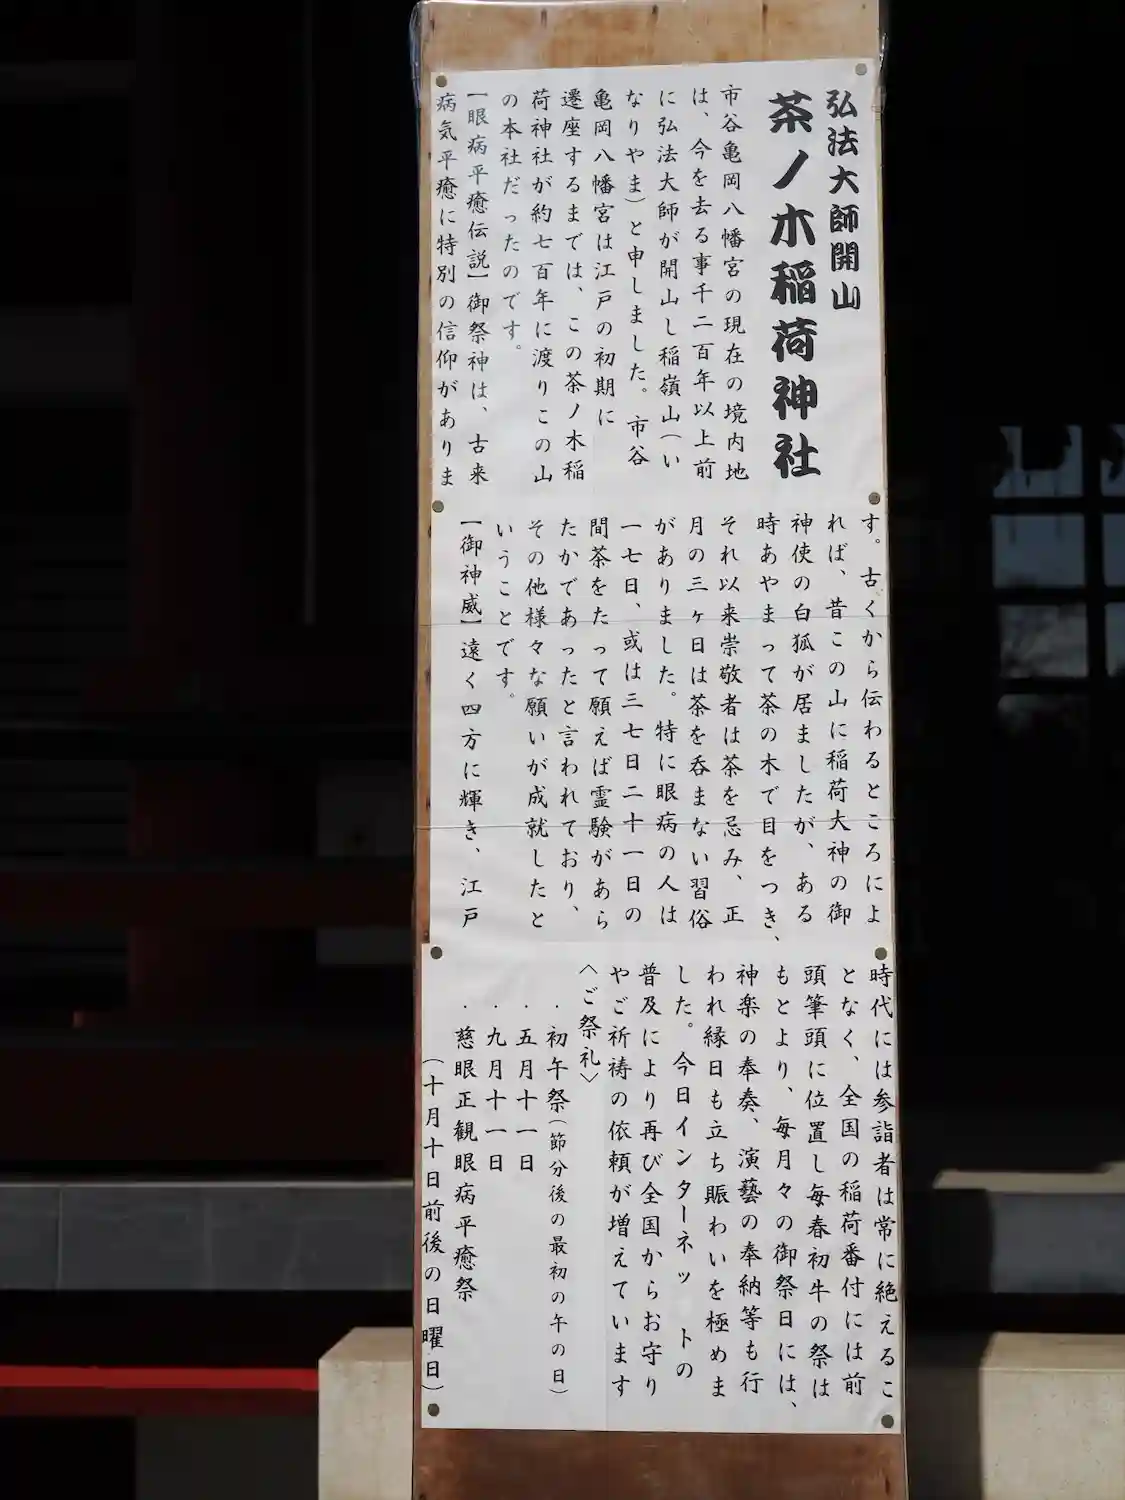 弘法大師開山
茶ノ木稲荷神社
市谷亀岡八幡宮の現在の境内地
は、今を去る事千二百年以上前
に弘法大師が開山し稲嶺山(い
なりやま)と申しました。市谷
亀岡八幡宮は江戸の初期に
遷座するまでは、この茶ノ木稲
荷神社が約七百年に渡りこの山
の本社だったのです。
【眼病平癒伝説】御祭神は、古来
病気平癒に特別の信仰がありま
す。古くから伝わるところによ
れば、昔この山に稲荷大神の御
神使の白狐が居ましたが、ある
時あやまって茶の木で目をつき、
それ以来崇敬者は茶を忌み、正
月の三ヶ日は茶を呑まない習俗
がありました。特に眼病の人は
一七日、或は三七日二十一日の
間茶をたって願えば霊験があら
たかであったと言われており、
その他様々な願いが成就したと
いうことです。
【御神威】遠く四方に輝き、江戸
時代には参詣者は常に絶えるこ
となく、全国の稲荷番付には前
頭筆頭に位置し毎春初牛の祭は
もとより、毎月々の御祭日には、
神楽の奉奏、演藝の奉納等も行
われ縁日も立ち賑わいを極めま
した。今日インターネットの
普及により再び全国からお守り
やご祈祷の依頼が増えています
〈ご祭礼〉
・初午祭(節分後の最初の午の日)
・五月十一日
・九月十一日
・慈眼正観眼病平癒祭
(十月十日前後の日曜日)